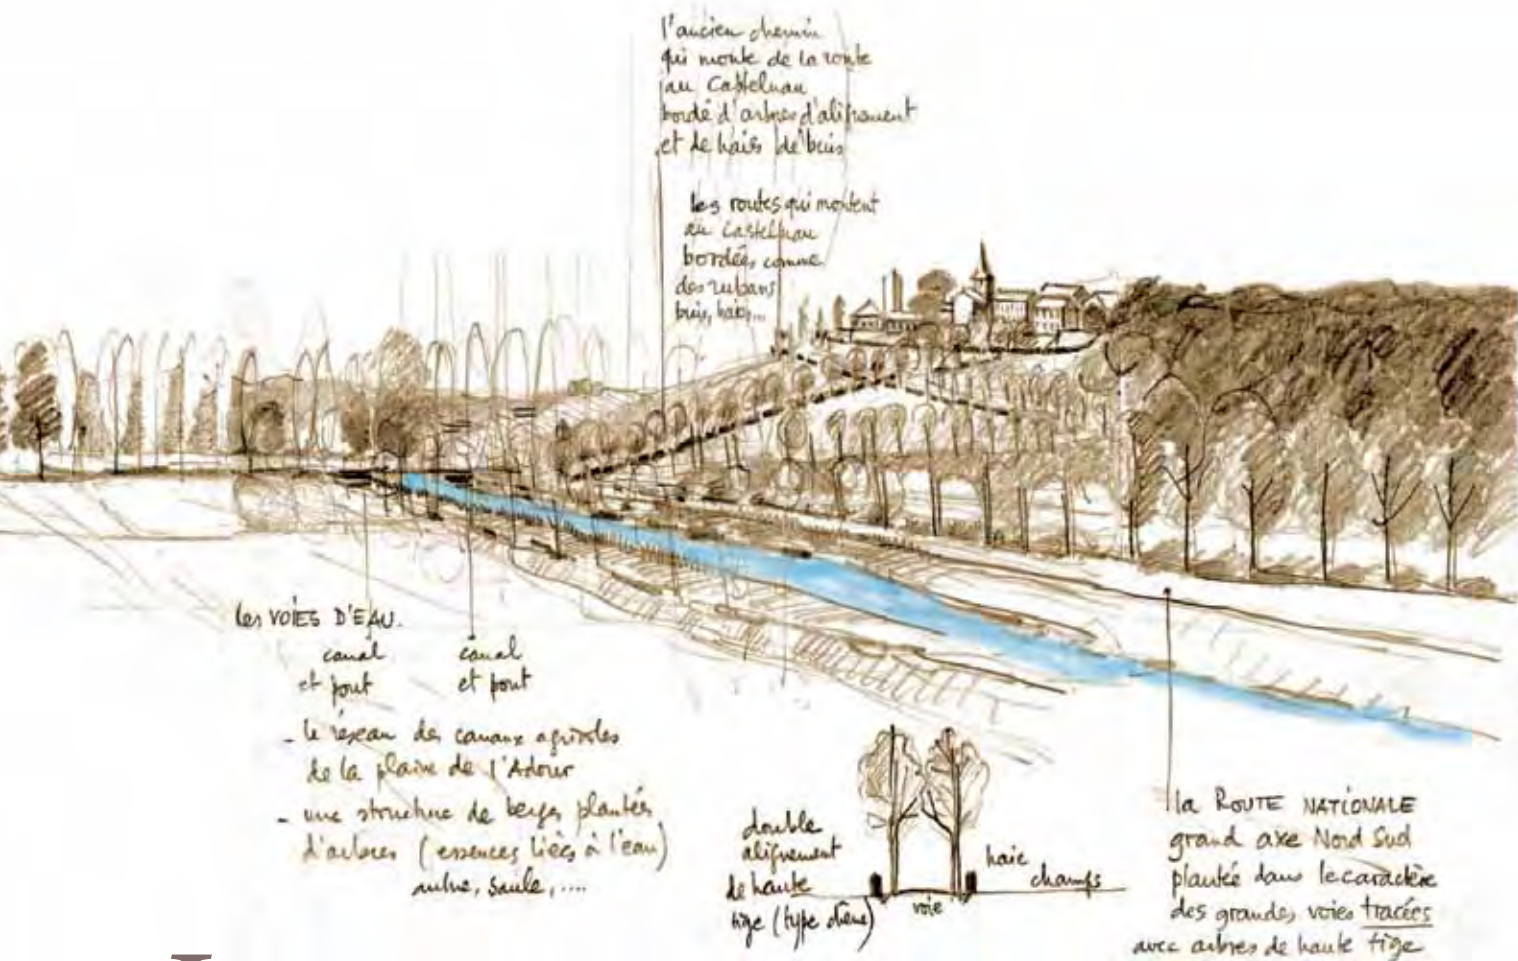 l'ancien chemin
qui monte de la route
au Castelnau
bordé d'arbres d'alignement
et de haies de buis
les routes qui montent
au castelnau
bordées comme
des rubans
buis, haies...
les VOIES D'EAU.
canal
et pont
canal
et pont
- le réseau des canaux agricoles
de la plaine de l'Adour
- une structure de berges plantés
d'arbres (essences liées à l'eau)
aulne, saule, ....
double
alignement
de haute
tige (type chêne)
haie
champs
voie
la ROUTE NATIONALE
grand axe Nord Sud
plantée dans le caractère
des grandes voies tracées
avec arbres de haute tige